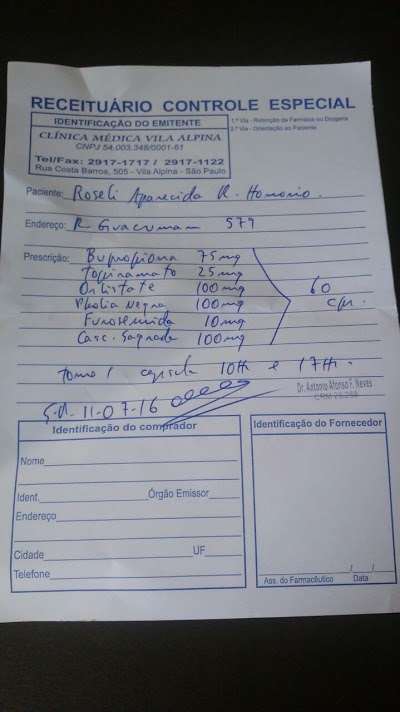 RECEITUÁRIO CONTROLE ESPECIAL
IDENTIFICAÇÃO DO EMITENTE
CLÍNICA MÉDICA VILA ALPINA
CNPJ 54.003.348/0001-61
Tel/Fax: 2917-1717 / 2917-1122
Rua Costa Barros, 505 - Vila Alpina - São Paulo
1.ª Via - Retenção da Farmácia ou Drogaria
2.ª Via - Orientação ao Paciente
Paciente: Roseli Aparecida R. Honorio.
Endereço: R 577
Prescrição: Bupropiona 75mg
Topiramato 25mg
Orlistate 100mg
Pholia Negra 100mg
Furosemida 10mg
Casc. Sagrada 100mg
60
Tomar 1 capsula 10H e 17H.
11-07-16
Dr. Antonio Afonso F. Neves
Identificação do comprador
Nome
Ident. Órgão Emissor
Endereço
Cidade UF
Telefone
Identificação do Fornecedor
/ /
Ass. do Farmacêutico Data